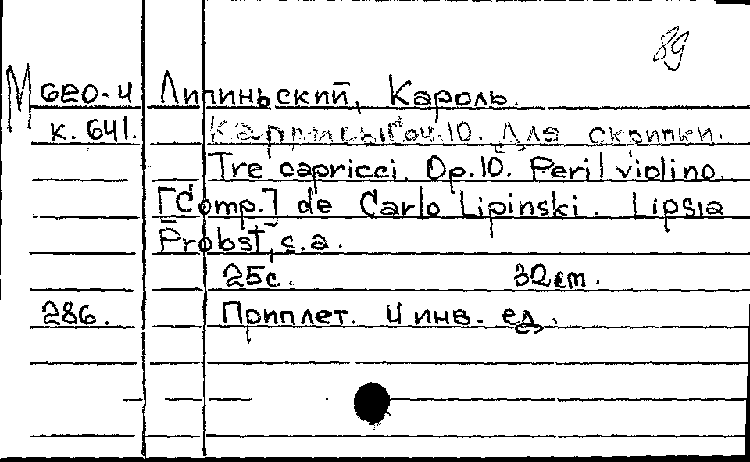 89
М 620-4 Липиньский, Кароль.
к. 641. Каприсы оч. 10. Для скрипки.
Tre capricci. Op. 10. Per il violino
[Comp.] de Carlo Lipinski. Lipsia
Probst, s.a.
25с. 32см.
286. Приплет. 4 инв. ед.